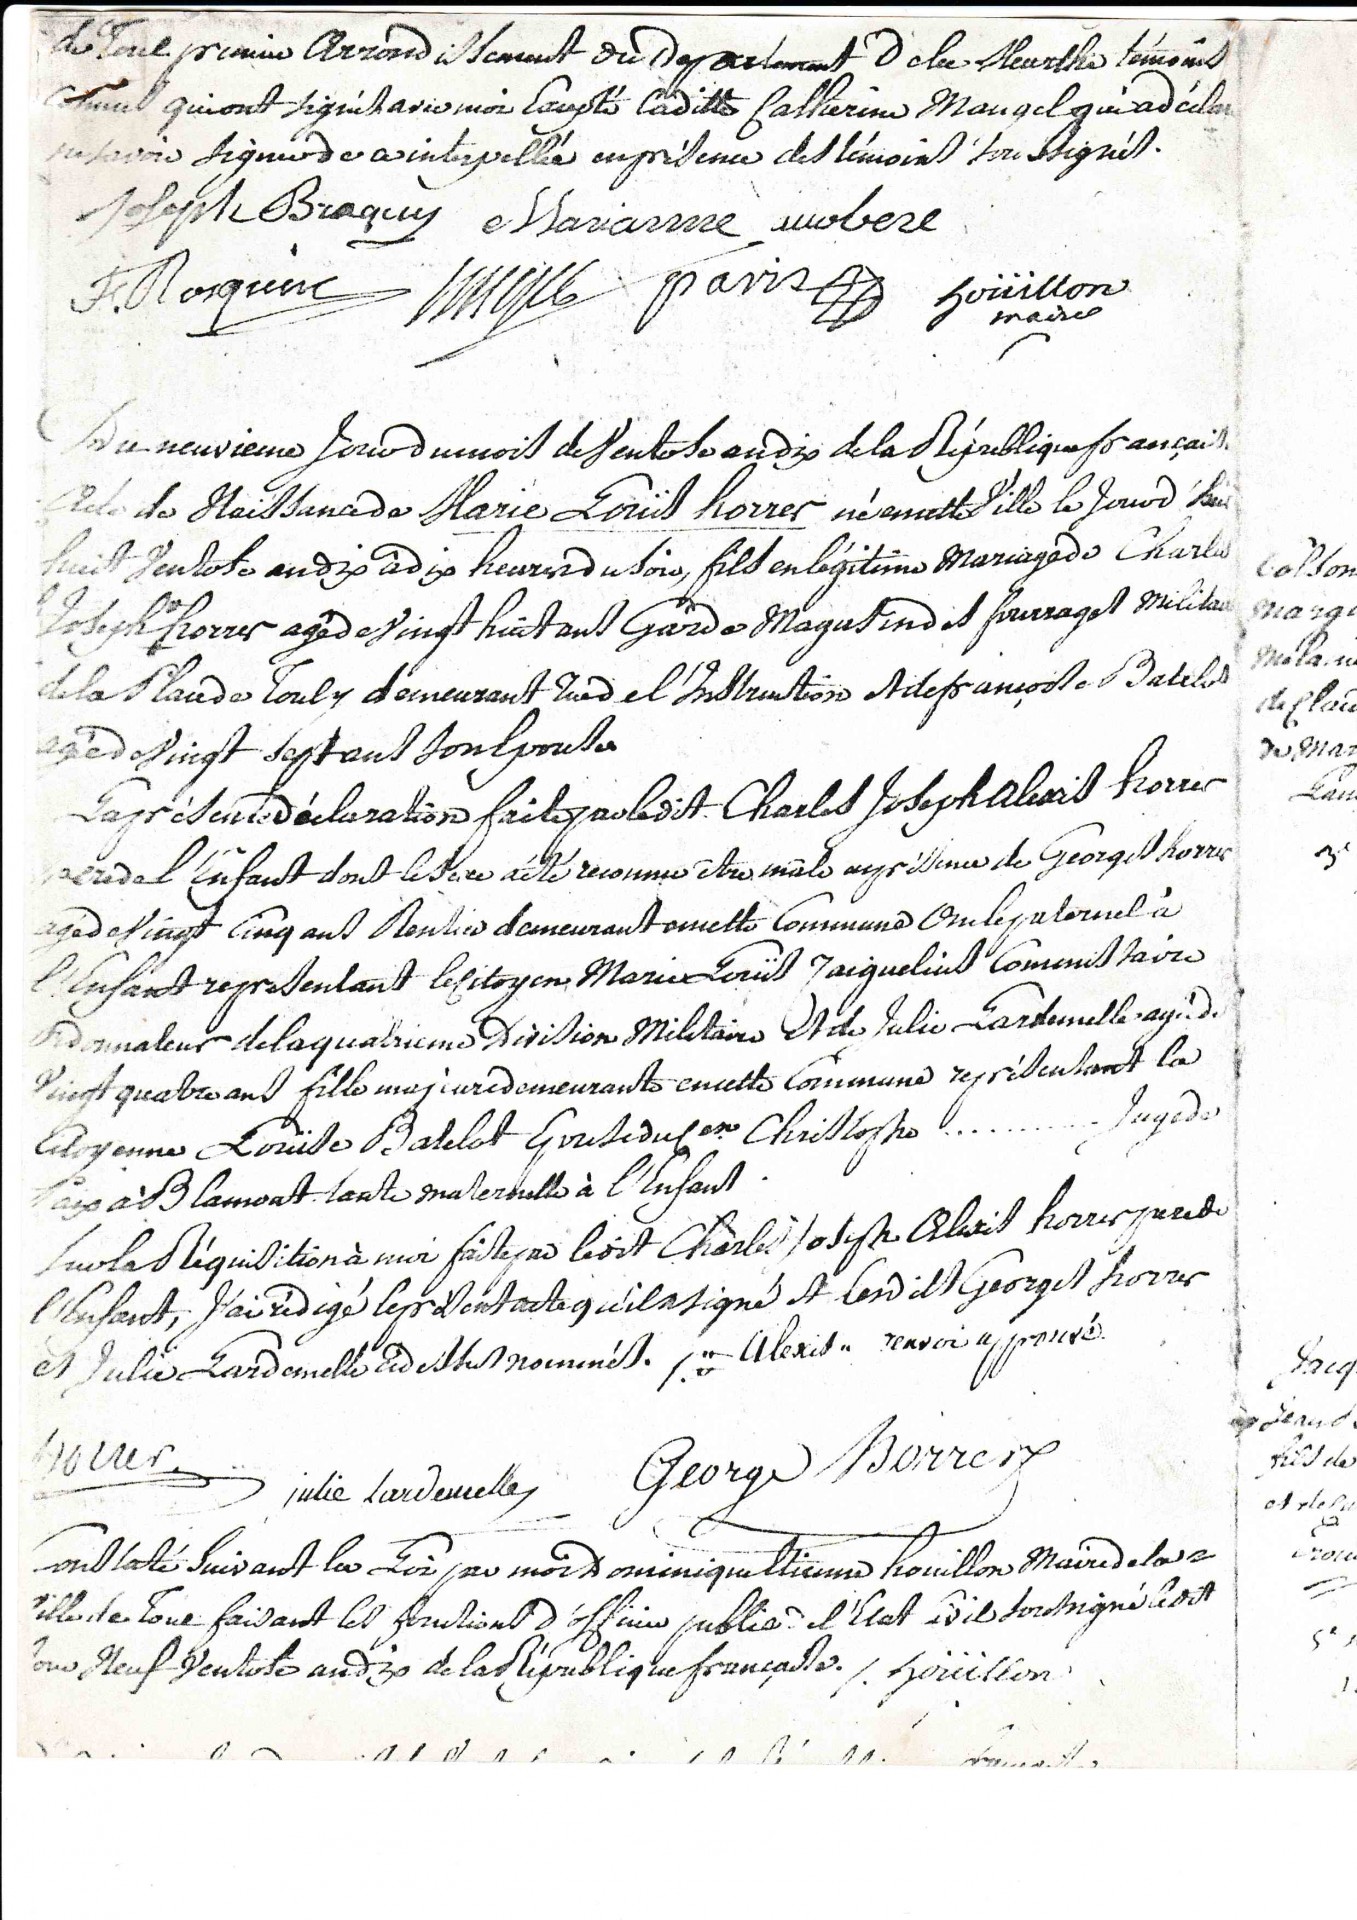 de Toul premier Arrondissement du Département D ela Meurthe témoins
connus qui ont signés avec moi Excepté Ladite Catherine Mangel qui a déclaré
ne savoir signer de ce interpellée en présence des témoins sou Ssignés.
Joseph Braquy Marianne
F. Rosquine paris hoüillon
maire
Du neuvieme Jour du mois de Ventose an dix de la République française
Acte de Naissance de Marie Loüis horrer né en cette Ville le Jour d'hier
huit Ventose an dix à dix heures du soir, fils en légitime Mariage de Charles
Joseph horrer agé de Vingt huit ans Garde Magasin des fourrages Militaires
de la Place de Toul, demeurant rue de l'Instruction et de françoise Batelot
agée de Vingt sept ans son Epouse
La présente Déclaration faite par ledit Charles Joseph Alexis horrer
père de l'Enfant dont le sexe a été reconnu être mâle en présence de Georges horrer
agé de Vingt Cinq ans Rentier demeurant en cette Commune Oncle paternel à
l'Enfant représentant le Citoyen Marie Loüis Jacquelins Commissaire
Ordonnateur de la quatrieme Division Militaire Et de Julie Lardemelle agée de
Vingt quatre ans fille majeure demeurante en cette Commune représentant la
Citoyenne Loüise Batelot Epouse du Cen Christophe ........... Juge de
Paix à Blamont tante maternelle à l'Enfant.
Sur la Réquisition à moi faite par ledit Charles Joseph Alexis horrer pere de
l'Enfant, J'ai rédigé le présent acte qu'il a signé et Lesdits Georges horrer
et Julie Lardemelle cidessus nommés. Alexis " renvoi approuvé
horrer. julie Lardemelle George Horrer
Constaté Suivant la Loi par moi Dominique Etienne houillon Maire de la
Ville de Toul faisant les fonctions d'officier public de l'Etat Civil soussigné ledit
Jour Neuf Ventose an dix de la République française. /. hoüillon